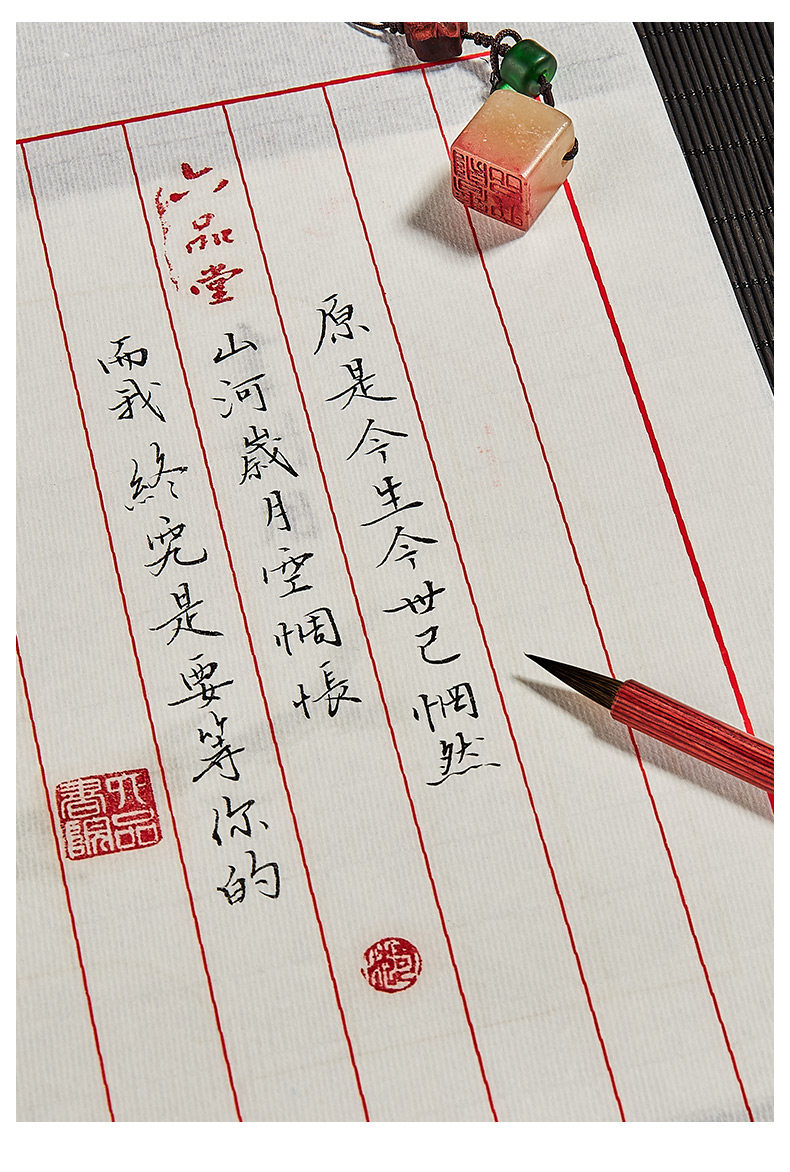 原是今生今世已惘然
山河歲月空惆悵
而我終究是要等你的
六品堂
六品書院